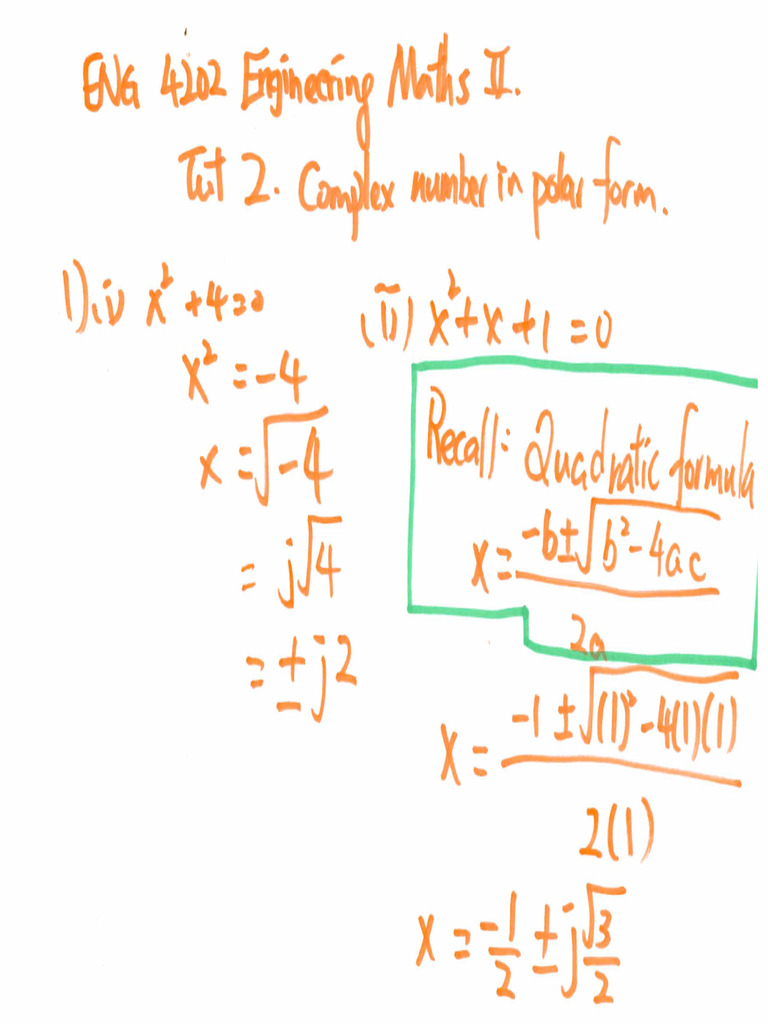 ENG 4202 Engineering Maths II.
Tut 2. Complex number in polar form.
1)(i) x² + 4 = 0
x² = -4
x = √-4
= j√4
= ± j2
(ii) x² + x + 1 = 0
Recall: Quadratic formula
x = -b ± √b² - 4ac
2a
x = -1 ± √(1)² - 4(1)(1)
2(1)
x = -1/2 ± j √3/2